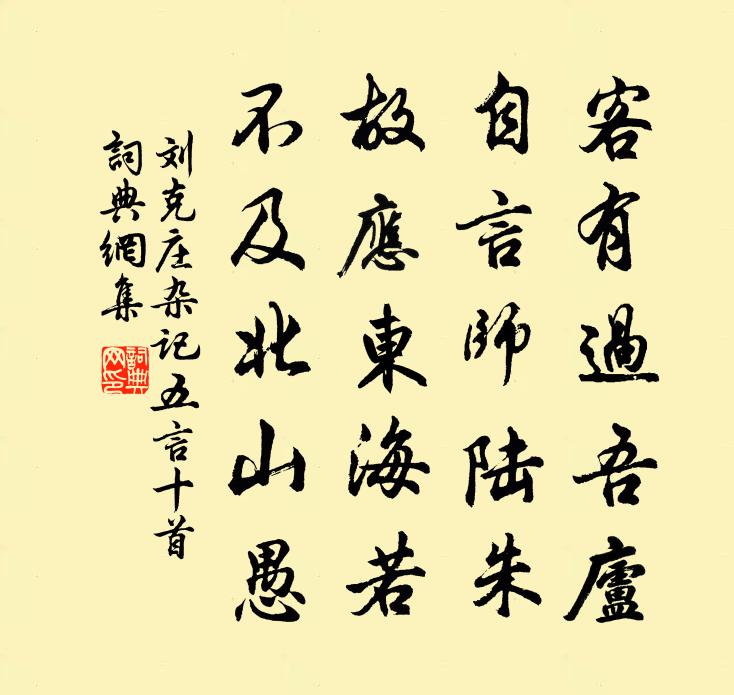 客有過吾廬
自言師陆朱
故應東海若
不及北山愚
刘克庄杂记五言十首
詞典網集
詞典網印